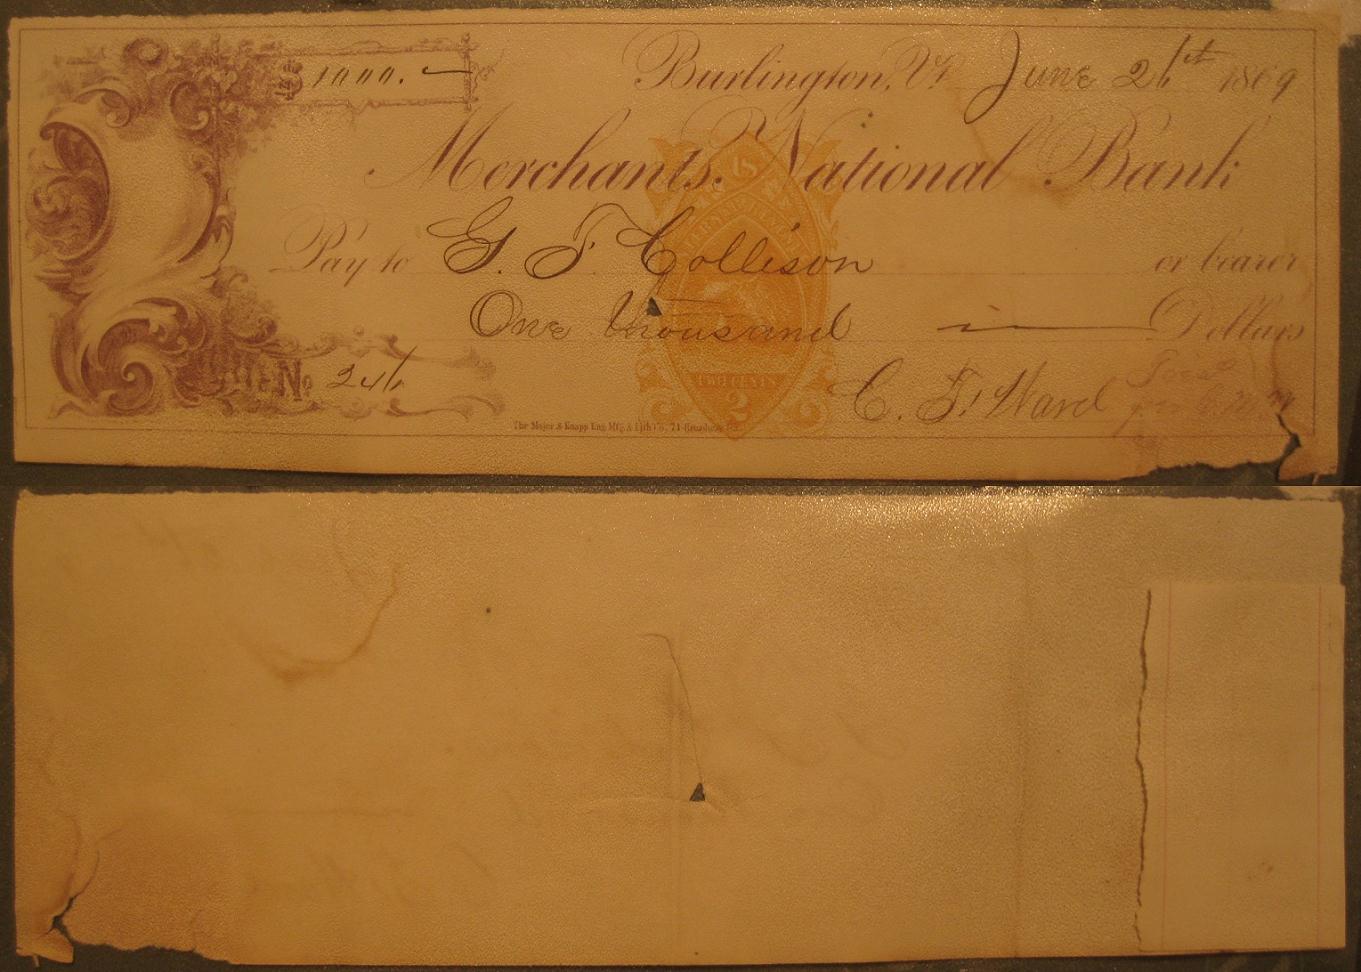 $ 1000.
Burlington, Vt. June 26th 1869
Merchants National Bank
Pay to G. F. Collison or bearer
One thousand Dollars
No. 246
C. F. Ward
The Major & Knapp Eng. Mfg. & Lith. Co. 71 Broadway
U.S.
INTERNAL REVENUE
TWO CENTS
2